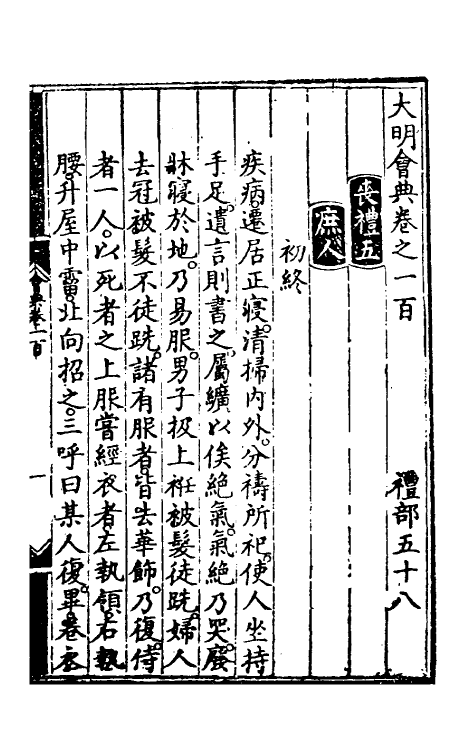 大明會典卷之一百 禮部五十八
喪禮五
庶人
初終
疾病遷居正寢。清掃內外。分禱所祀。使人坐持
手足。遺言則書之。屬纊以俟絕氣。氣絕乃哭。廢
牀寢於地。乃易服。男子扱上衽被髮徒跣。婦人
去冠被髮不徒跣。諸有服者。皆去華飾。乃復。侍
者一人。以死者之上服嘗經衣者。左執領。右執
腰。升屋中霤。北向招之。三呼曰某人復。畢。卷衣
會典卷一百 一